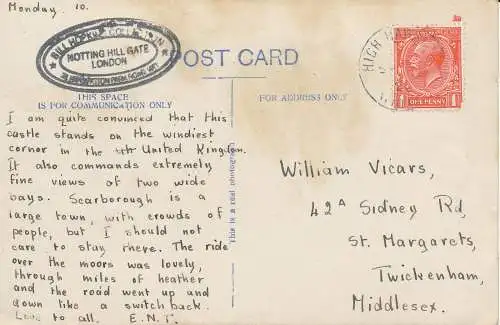 Monday 10.
BILL HOPKINS COLLECTION
NOTTING HILL GATE
LONDON
POST CARD
THIS SPACE
IS FOR COMMUNICATION ONLY
FOR ADDRESS ONLY
HIGH
ONE PENNY
1 1
This is a real photograph
I am quite convinced that this
castle stands on the windiest
corner in the United Kingdom.
It also commands extremely
fine views of two wide
bays. Scarborough is a
large town, with crowds of
people, but I should not
care to stay there. The ride
over the moors was lovely,
through miles of heather
and the road went up and
down like a switchback.
Love to all. E.N.T.
William Vicars,
42A Sidney Rd,
St. Margarets,
Twickenham,
Middlesex.